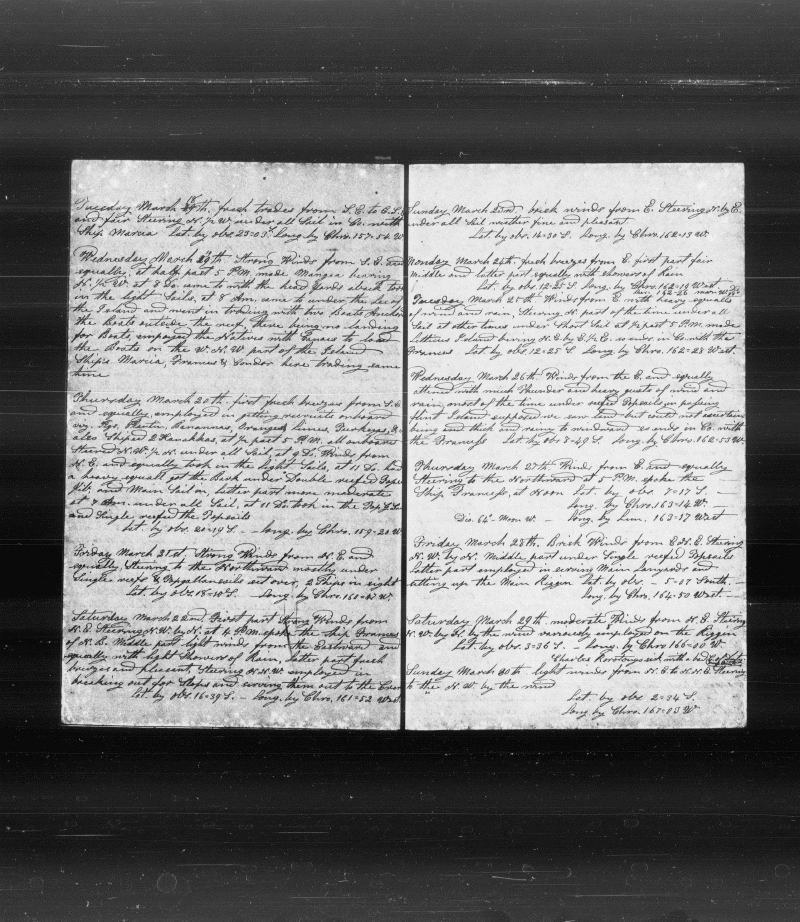 Tuesday March 18th, fresh trades from S.E. to E.S.E.
and fair Steering N. ½ W. under all Sail in Co. with
Ship Marcia Lat by obs. 23=03 S. Long. by Chro. 157=54 W.
Wednesday March 19th Strong Winds from S.E. and
squally, at half past 5 P.M. made Mangea bearing
N. ½ W. at 8 Do. came to with the head yards aback took
in the light Sails, at 8 Am. came to under the Lee of
the Island and went in trading with two Boats
the Boats outside the reef, there being no landing
for Boats employed the Natives with Canoes to load
the Boats on the W.N.W. part of the Island
Ships Marcia, Frances & Condor here trading same
time
Thursday March 20th, first fresh breezes from S.E.
and squally, employed in getting recruits onboard
viz. Hogs, Plantin, Banannas, Oranges, Limes, Turkeys, &
also Shiped 2 Kanakkas at ½ past 5 P.M. all onboard
Steered N.W. ½ N. under all Sail, at 9 Do. Winds from
N.E. and squally took in the light Sails, at 11 Do. had
a heavy squall got the Bark under Double reefed Tops
Jib and Main Sail on, latter part more moderate
at 7 Am. under all Sail, at 11 Do. took in the Top G. Ls
and Single reefed the Topsails
Lat by obs. 20=19 S. - Long. by Chro. 159=20 W.
Friday March 21st Strong Winds from N.E. and
squally Stering to the Northward mostly under
Single reefs & Topgallansails set over, 2 Ships in sight
Lat by obs. 18=10 S. - Long. by Chro. 160=47 W.
Saturday March 22nd, First part Strong Winds from
N.E. Steering N.W. by N. at 4 P.M. spoke the ship Frances
of N.B. Middle part light winds from the Eastward and
squally with light Showers of Rain, latter part fresh
breezes and pleasant Steering N.N.W. employed in
breaking out for Slops and serving them out to the Crew
Lat by obs. 16=39 S. - Long. by Chro. 161=52 West
Sunday March 23rd, brisk winds from E. Steering N. by E.
under all Sail weather fine and pleasant
Lat by obs. 14=30 S. Long. by Chro. 162=13 W.
Monday March 24th, fresh breezes from E. first part fair
Middle and latter part squally with showers of Rain
Lat. by obs. 12=25 S. Long by Chro. 162=19 West
Tuesday March 25th Winds from E. with heavy squalls
of wind and rain, Steering N. part of the time under all
Sail at other times under Short Sail at ½ past 5 P.M. made
Island bering N.E. by E. ½ E. so ends in Co. with the
Frances Lat by obs. 12=25 S. Long by Chro. 162=28 West.
Wednesday March 26th Winds from the E. and squally
attined with much Thunder and heavy gusts of wind and
rain, most of the time under reefed Topsails in passing
flint Island supposed we saw land but could not ascertain
being and thick and rainy to windward so ends in Co. with
the Francess Lat by obs. 8=49 S. Long. by Chro. 162=53 W.
Thursday March 27th Wind from E. and squally
Steering to the Northward at 5 P.M. spoke the
Ship Francess, at Noon Lat by obs. 7=17 S. -
Long. by Chro. 163=14 W. -
Dis. 64°- Moon W. - Long. by Lun. 163=17 West
Friday March 28th, Brisk Winds from E.N.E. Steering
N.W. by N. Middle part under Single reefed Topsails
latter part employed in serving Main Lanyards and
setting up the Main Riggin Lat by obs. - 5=07 South. -
Long by Chro. 164=50 West -
Saturday March 29th moderate Winds from N.E. Stering
N.W. by N. by the wind variously employed on the Riggin
Lat by obs. 3=36 S. - Long by Chro 166=00 W.
Charles Rorotonga sick with a bad
Sunday March 30th light winds from N.E. to N.N.E. Steering
to the N.W. by the wind
Lat by obs 2=34 S.
Long by Chro. 167=03 W.